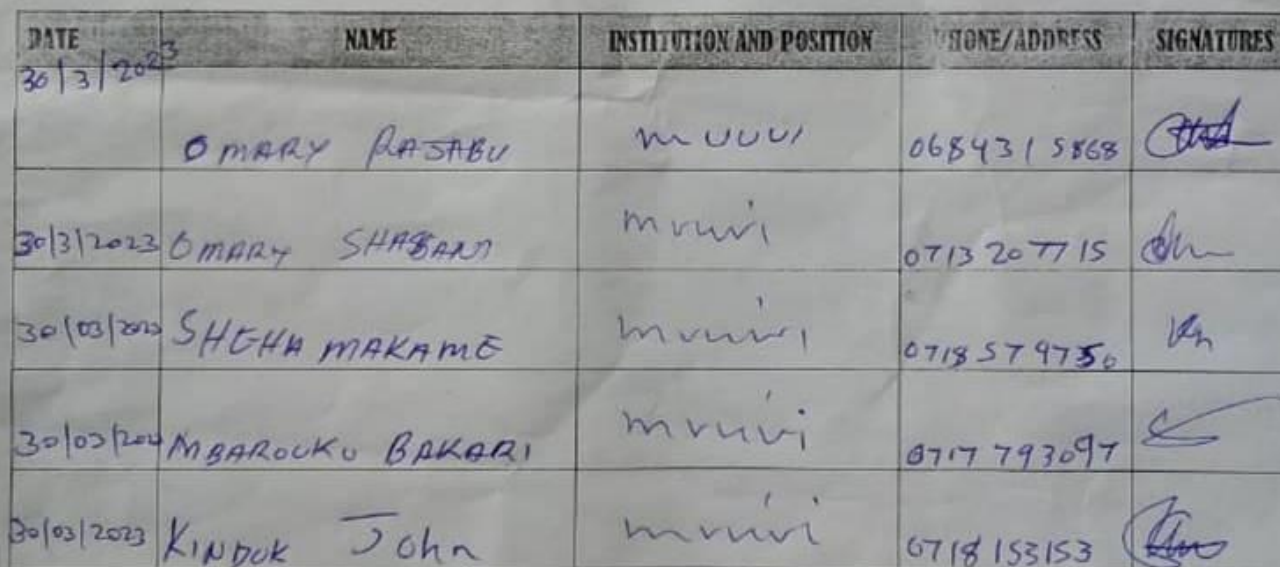 DATE NAME INSTITUTION AND POSITION PHONE/ADDRESS SIGNATURES
30/3/2023
OMARY RAJABU mvuvi 0684315868
30/3/2023 OMARY SHABANI mvuvi 0713 207715
30/03/2023 SHEHA MAKAME mvuvi 0718 579750
30/03/202 MBAROUKU BAKARI mvuvi 0717 793097
30/03/2023 KINDUK John mvuvi 0718 153153